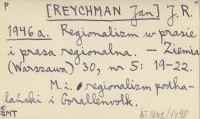 P [REYCHMAN Jan] J.R.
1946 a. Regionalizm w prasie
i prasa regionalna. — Ziemia
(Warszawa) 30, nr 5: 19-22.
M.i. regionalizm podha-
lański i Gorallenvolk.
SMT